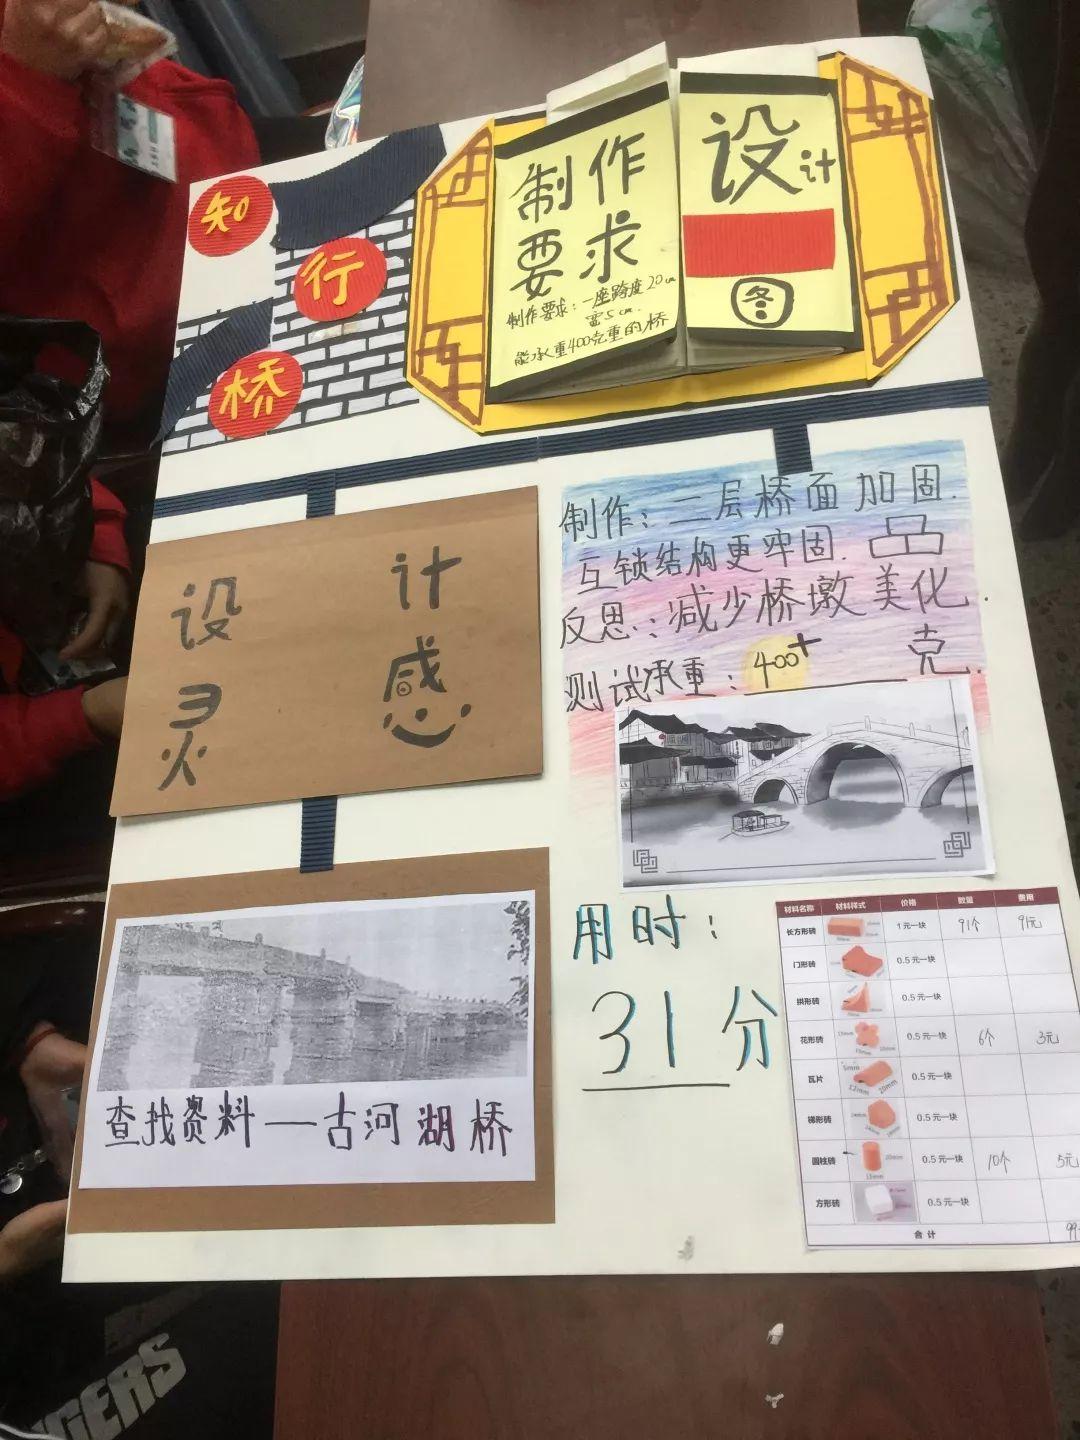 知
行
桥
制作
要求
制作要求：一座跨度20cm
宽5cm.
能承重400克重的桥
设计
图
设计
灵感
制作：二层桥面加固.
互锁结构更牢固.
反思：减少桥墩美化.
测试承重：400+克.
查找资料—古河湖桥
用时：
31分
材料名称 材料样式 价格 数量 费用
长方形砖 1元一块 91个 91元
门形砖 0.5元一块
拱形砖 0.5元一块
花形砖 0.5元一块 6个 3元
瓦片 0.5元一块
梯形砖 0.5元一块
圆柱砖 0.5元一块 10个 5元
方形砖 0.5元一块
合计 99